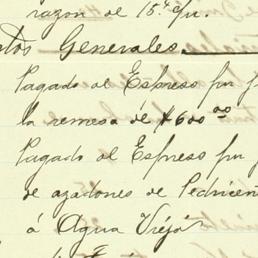 razon de 15.c/u.
Gastos Generales.
Pagado al Espreso por
la remesa de $600 00
Pagado al Espreso por
de azadones de Pedriceña
á Agua Vieja